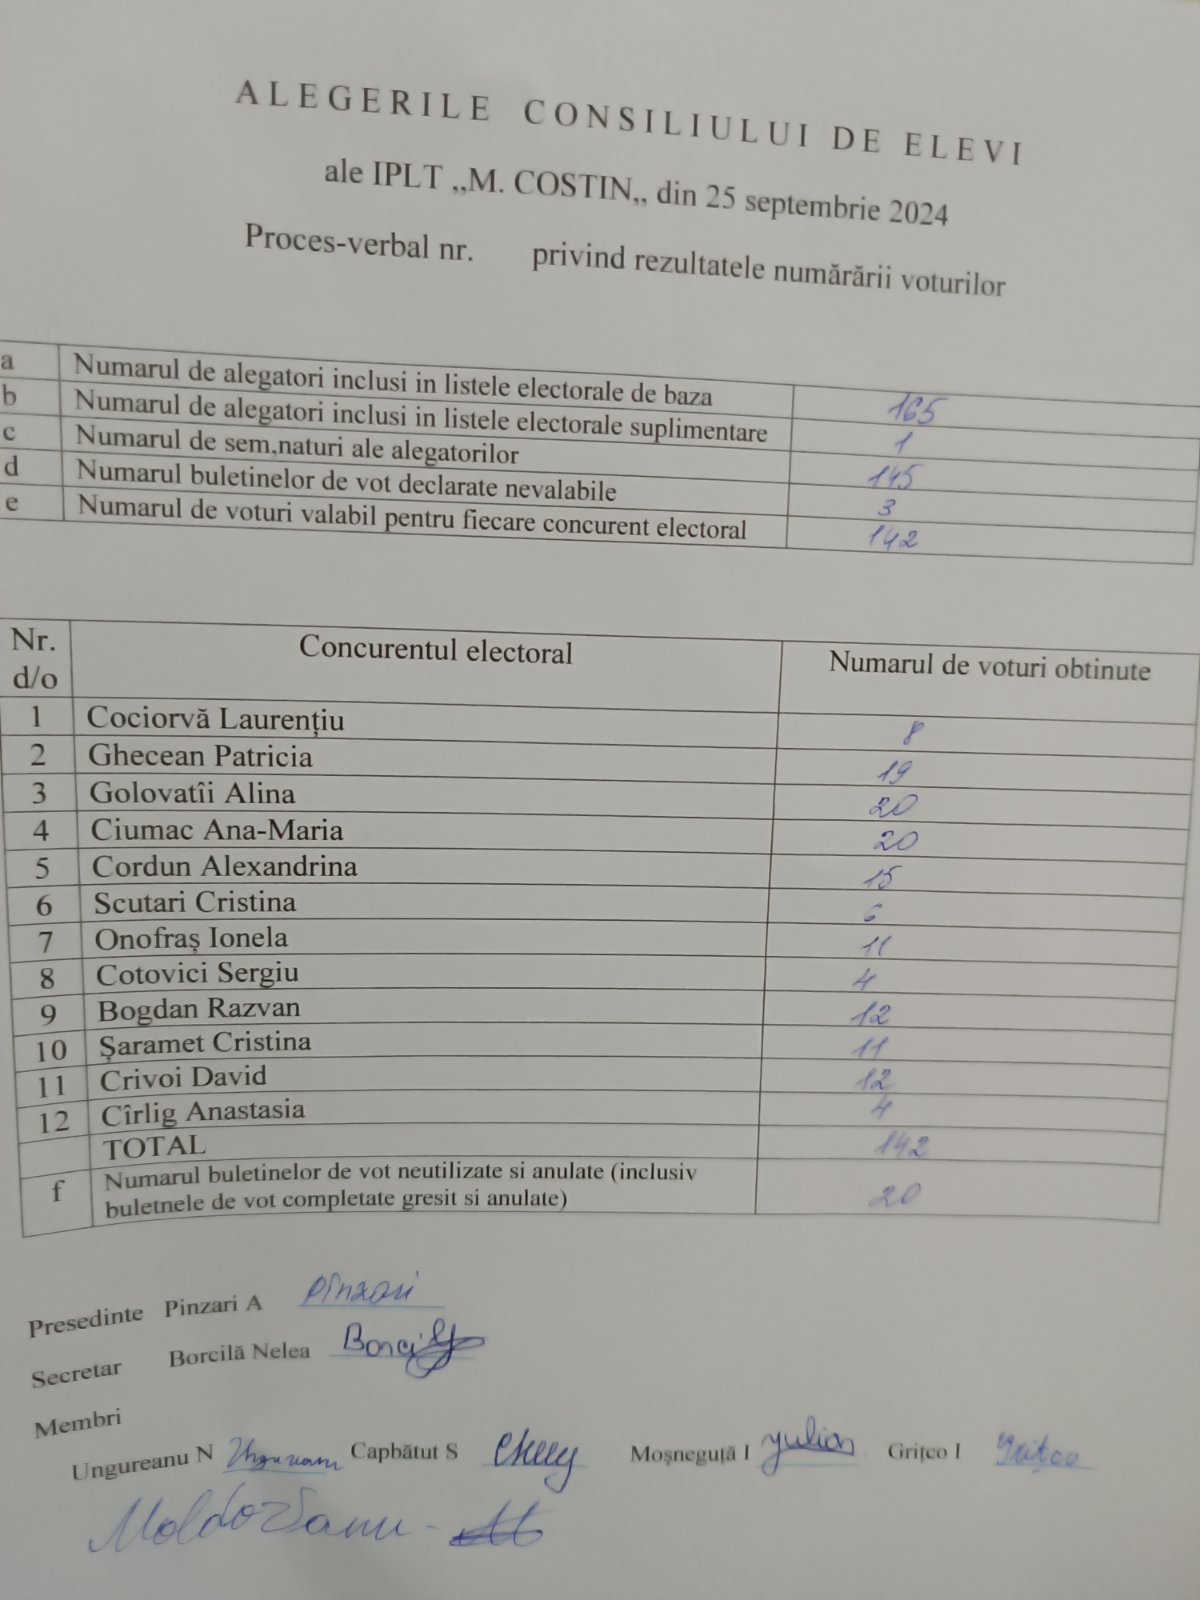 ALEGERILE CONSILIULUI DE ELEVI
ale IPLT ,,M. COSTIN,, din 25 septembrie 2024
Proces-verbal nr. privind rezultatele numărării voturilor
a Numarul de alegatori inclusi in listele electorale de baza 165
b Numarul de alegatori inclusi in listele electorale suplimentare 1
c Numarul de sem,naturi ale alegatorilor 145
d Numarul buletinelor de vot declarate nevalabile 3
e Numarul de voturi valabil pentru fiecare concurent electoral 142
Nr. d/o Concurentul electoral Numarul de voturi obtinute
1 Cociorvă Laurențiu 8
2 Ghecean Patricia 19
3 Golovatîi Alina 20
4 Ciumac Ana-Maria 20
5 Cordun Alexandrina 15
6 Scutari Cristina 6
7 Onofraș Ionela 11
8 Cotovici Sergiu 4
9 Bogdan Razvan 12
10 Șaramet Cristina 11
11 Crivoi David 12
12 Cîrlig Anastasia 4
TOTAL 142
f Numarul buletinelor de vot neutilizate si anulate (inclusiv
buletnele de vot completate gresit si anulate) 20
Presedinte Pinzari A Pinzari
Secretar Borcilă Nelea
Membri
Ungureanu N Ungureanu Capbătut S Moșneguță I Iulian Grițco I Grițco
Moldovanu -